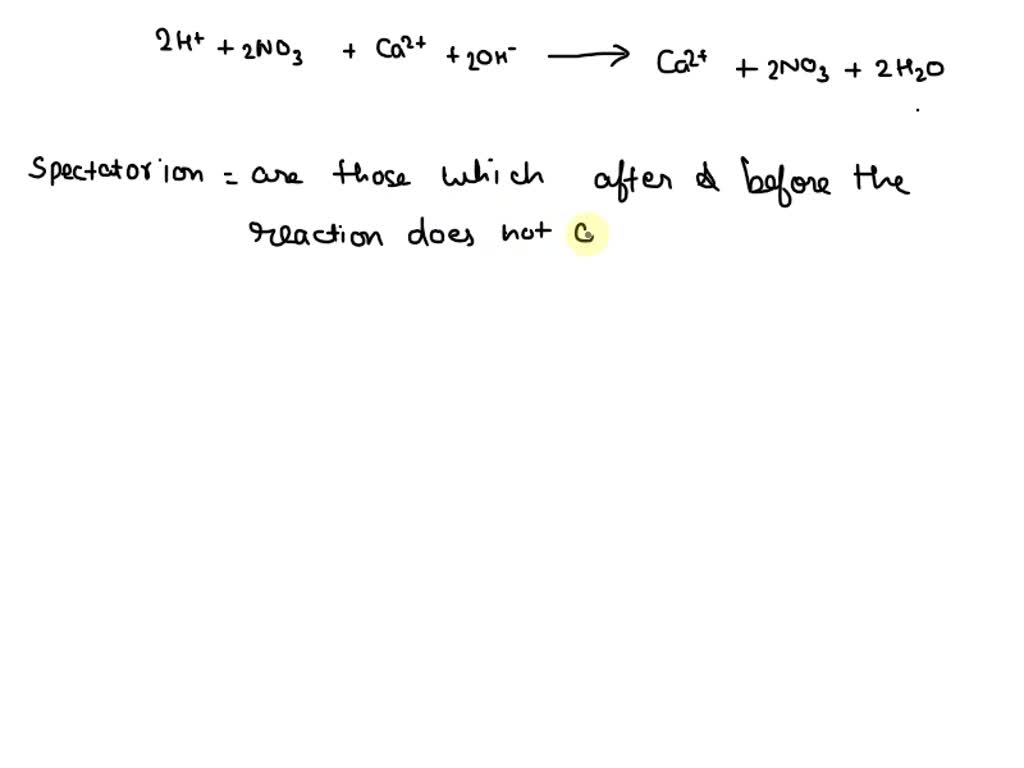 2H⁺ + 2NO₃ + Ca²⁺ + 2OH⁻ ⟶ Ca²⁺ + 2NO₃ + 2H₂O
Spectator ion = are those which after & before the
reaction does not c